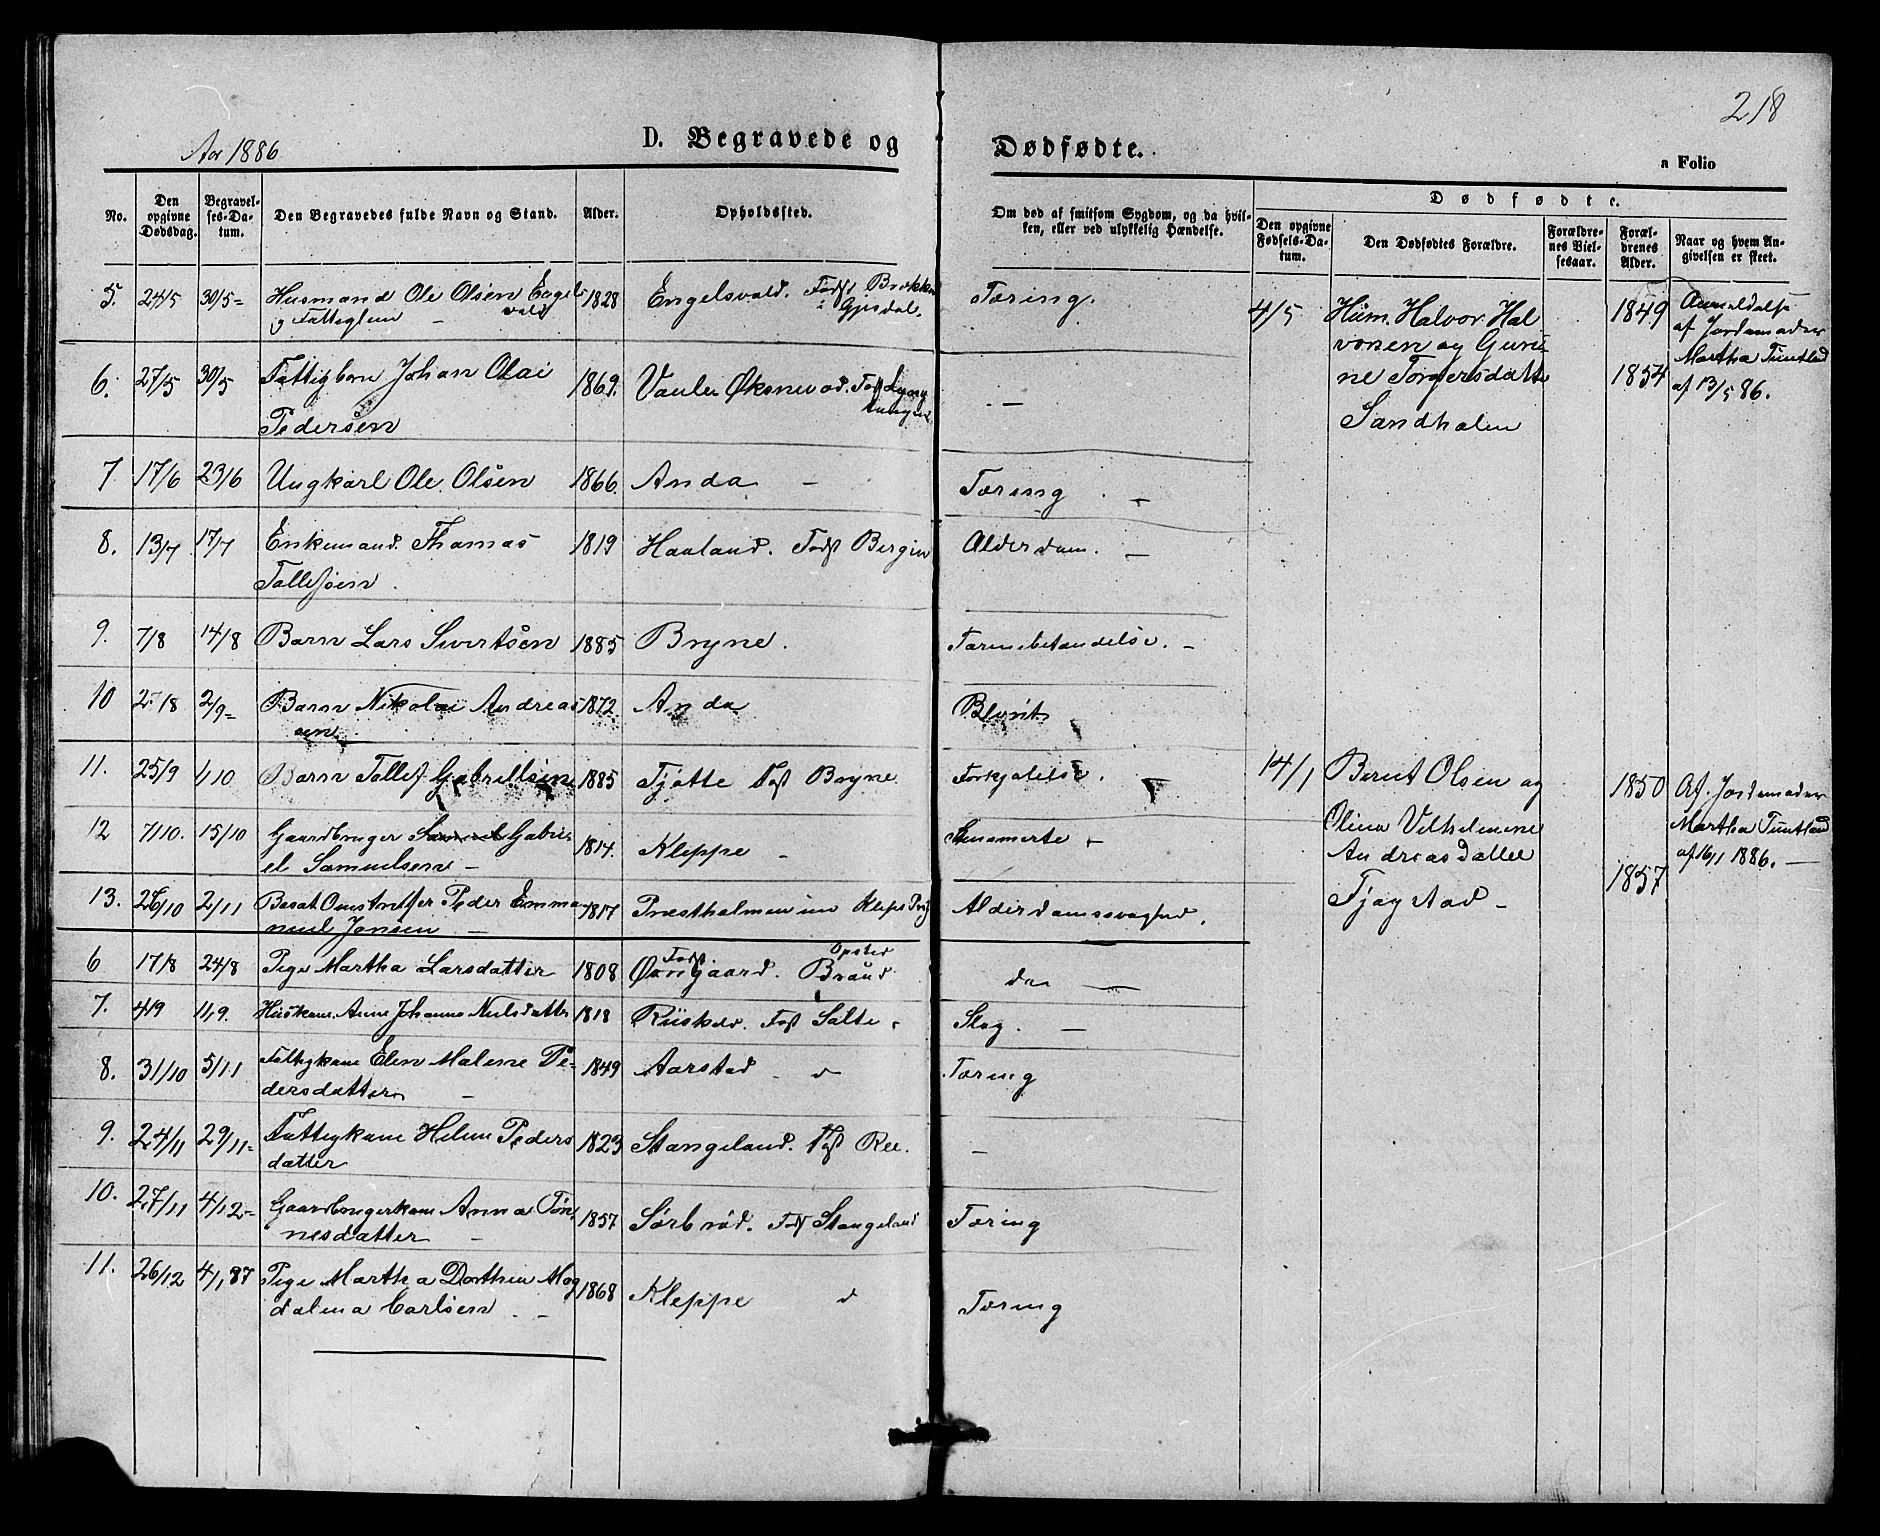 218
Aar 1886
D. Begravede og Dødfødte.
a Folio
No.
Den opgivne Dødsdag.
Begravelses-Datum.
Den Begravedes fulde Navn og Stand.
Alder.
Opholdssted.
Om død af smitsom Sygdom, og da hvilken, eller ved ulykkelig Hændelse.
Dødfødte.
Den opgivne Fødsels-Datum.
Den Dødfødtes Forældre.
Forældrenes Vielsesaar.
Forældrenes Alder.
Naar og hvem Angivelsen er skeet.
5. 24/5 30/5- Husmand Ole Olsen Engels 1828 Engelsvold. Født Brekke Tæring.
vold i Gjesdal.
6. 27/5 30/5 Fattigbarn Johan Olai 1869. Øksnevad. Født -
Pedersen
7. 17/6 23/6 Ungkarl Ole Olsen 1866. Anda - Tæring. -
8. 13/7 17/7 Enkemand Thomas 1819 Haaland. Født Bergen Alderdom. -
Tollefsen.
9. 7/8 14/8 Barn Lars Sivertsen 1885 Bryne. Tarmebetændelse. -
10 2/9- Barn Nikolai Andreas 1872 Anda
sen
11. 25/9 1/10 Barn Tollef Gabrielsen 1885 Tjøtte Født Bryne Forkjølelse.
12 7/10. 15/10 Gaardbruger Samuel Gabri- 1814. Kleppe -
el Samuelsen -
13. 26/10 2/11 Peder Emma 1817 Præstholmen Alderdomssvaghed.
nuel Jonsen -
6 17/8 24/8 Pige Martha Larsdatter 1808 Øvregaard. Født Opsted Braud do -
7. 4/9 11/9. Huskone Anne Johanne Nilsdatter 1818 Født Salte. Slag. -
8. 31/10 5/11 Fattigkone Elen Malene Pe- 1849 Aarstad Tæring
dersdatter -
9. 24/11 29/11- Fattigkone Helene Peders 1823 Stangeland. Født Ree. -
datter
10. 27/11 4/12- Gaardbrugerkone Anna Tøn 1857 Sørbrød. Født Stangeland Tæring
nesdatter -
11. 26/12 4/1 87 Pige Martha Dorthea Mag 1868 Kleppe do Tæring
dalena Carlsen -
4/5 Husm. Halvor Hal 1849 Anmeldelse
vorsen og Guru- af Jordemoder
ne Torgersdatter 1854 Martha Tuntland
Sandholen af 13/5 86.
14/1 Berent Olsen og 1850 Af Jordemoder
Olina Vilhelmine Martha Tuntland
Andreasdatter 1857 af 16/1 1886. -
Tjøgstad -